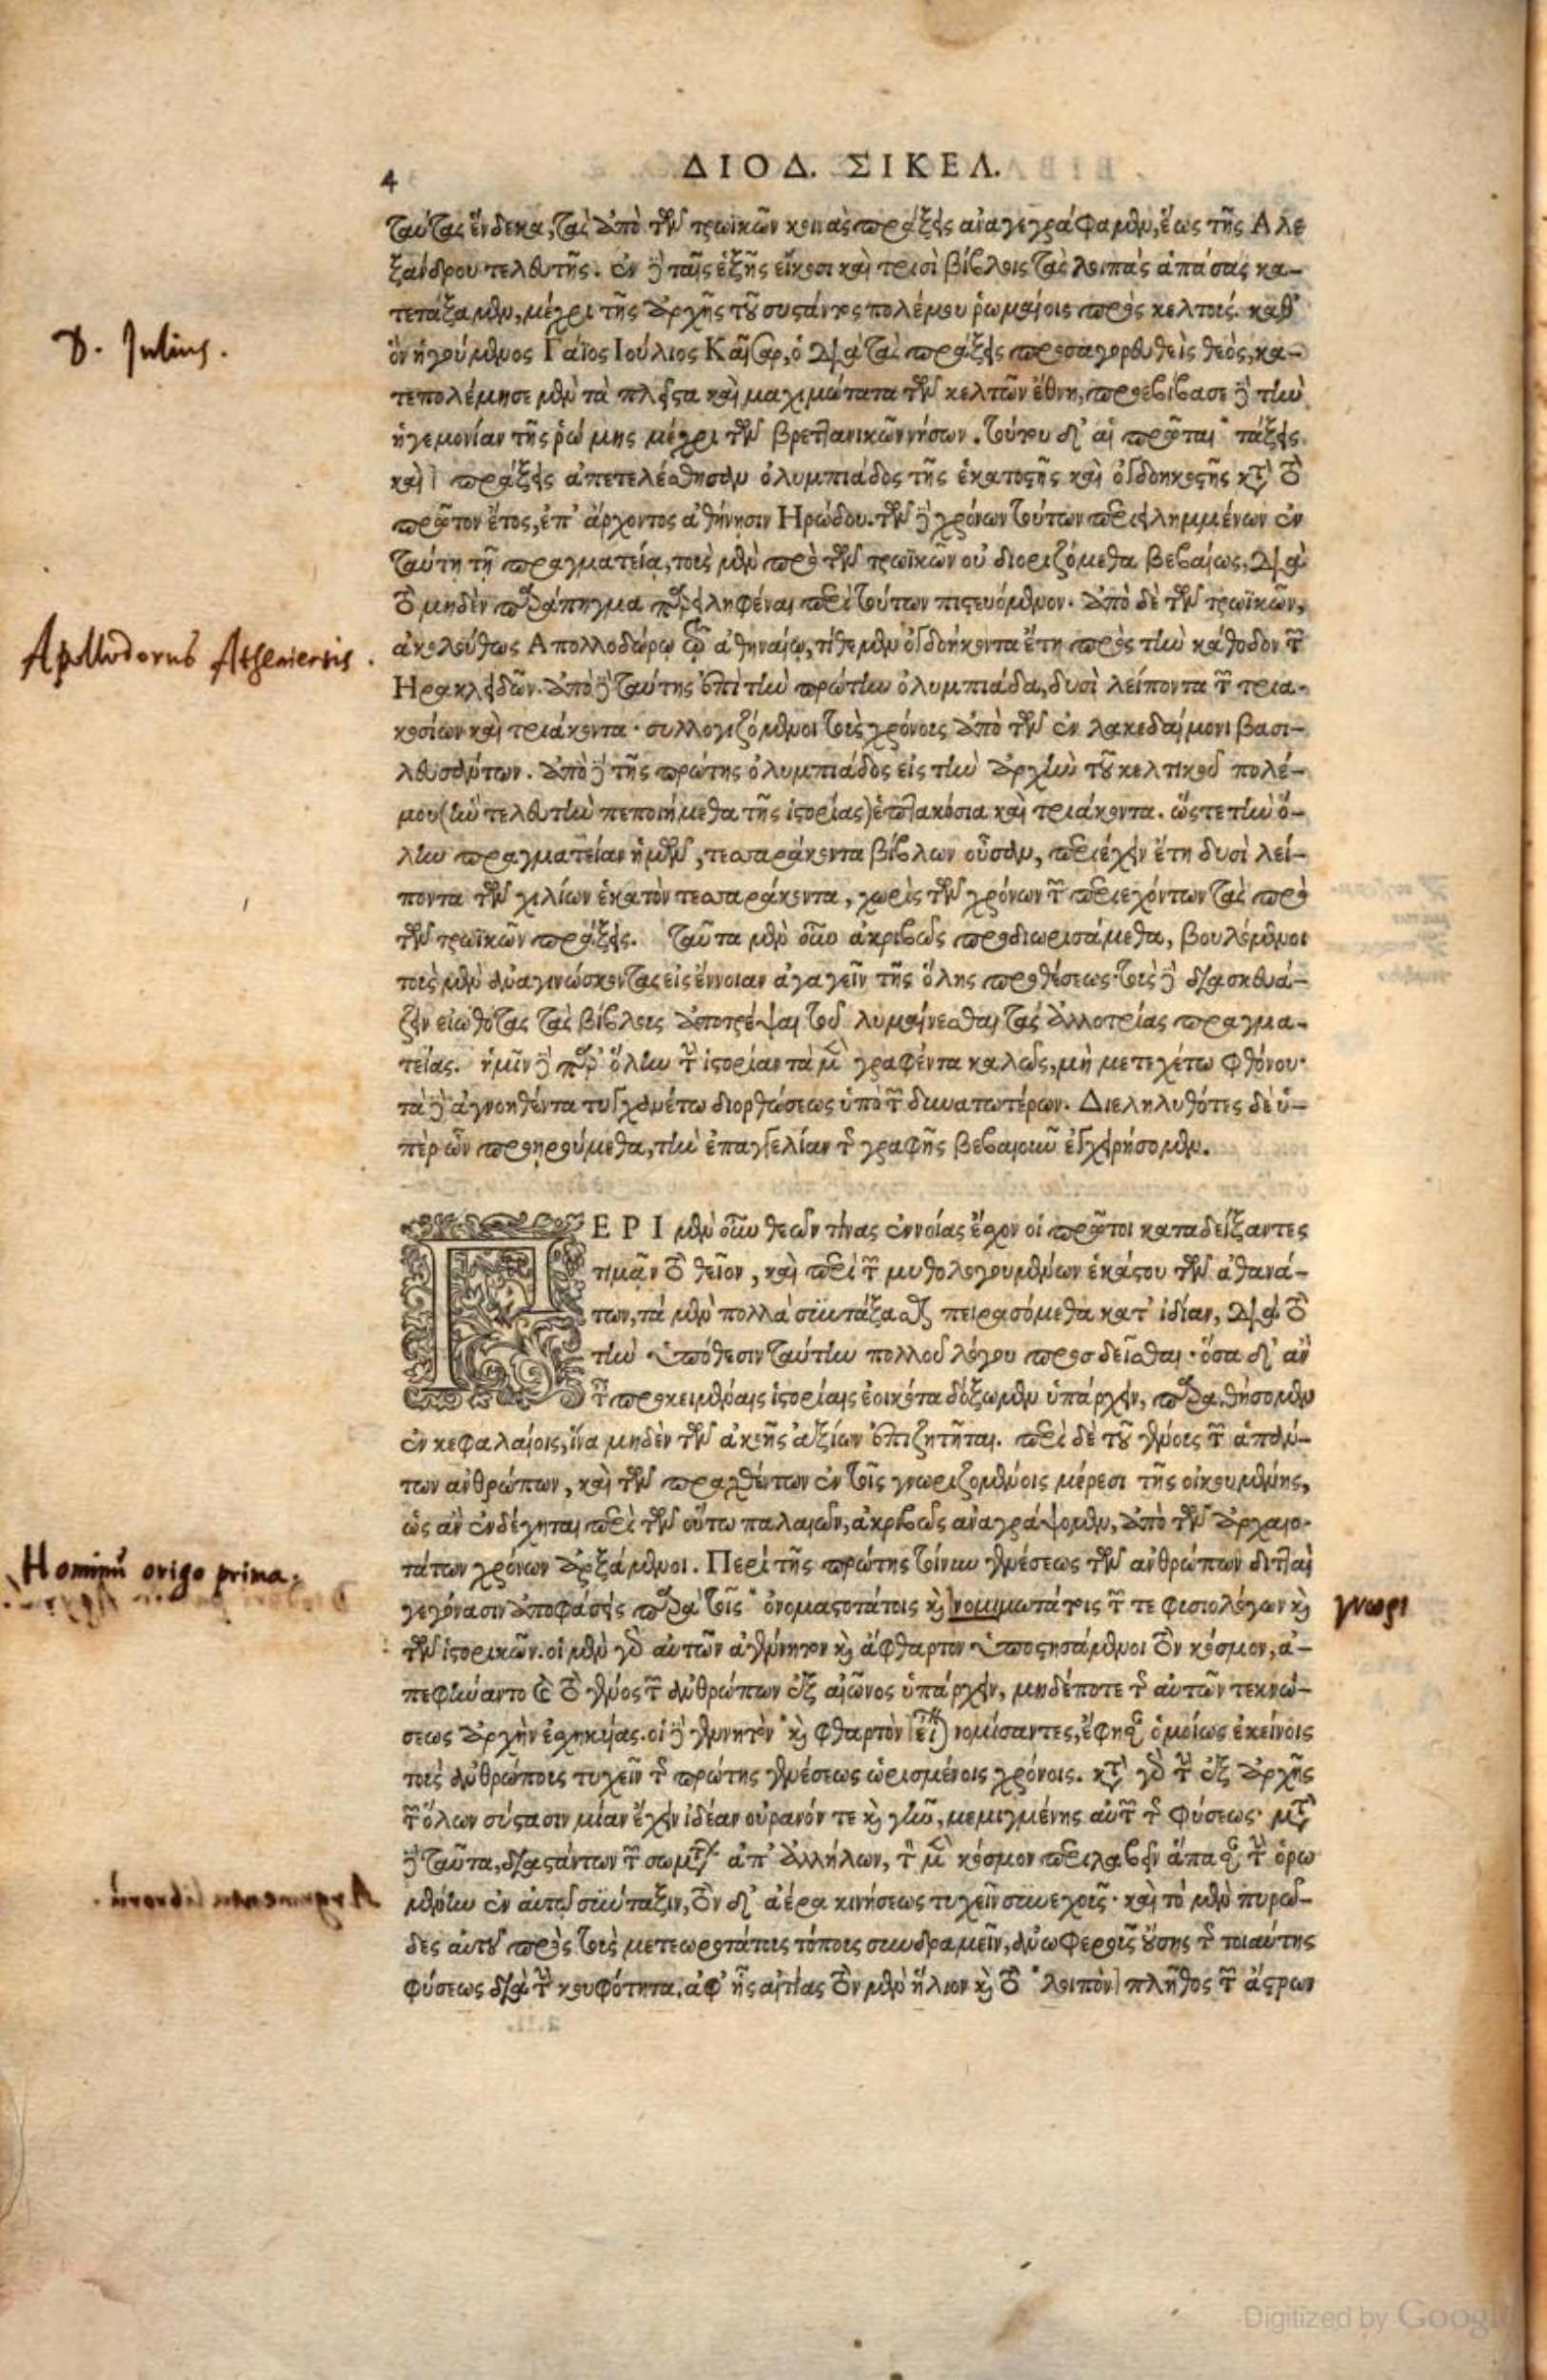 4 ΔΙΟΔ. ΣΙΚΕΛ.
ταύτας ἕνδεκα, τὰς ἀπὸ τῶν τρωϊκῶν κοινὰς πράξεις ἀναγεγράφαμεν, ἕως τῆς Αλε
ξάνδρου τελευτῆς. ἐν δὲ ταῖς ἑξῆς εἴκοσι καὶ τρισὶ βίβλοις τὰς λοιπὰς ἁπάσας κα-
τετάξαμεν, μέχρι τῆς ἀρχῆς τοῦ συστάντος πολέμου ῥωμαίοις πρὸς κελτούς. καθ'
ὃν ἡγούμενος Γάϊος Ιούλιος Καῖσαρ, ὁ διὰ τὰς πράξεις προσαγορευθεὶς θεός, κα-
D. Julius.
τεπολέμησε μὲν τὰ πλεῖστα καὶ μαχιμώτατα τῶν κελτῶν ἔθνη, προεβίβασε δὲ τὴν
ἡγεμονίαν τῆς ῥώμης μέχρι τῶν βρεττανικῶν νήσων. τούτου δ' αἱ πρῶται τάξεις
καὶ πράξεις ἀπετελέσθησαν ὀλυμπιάδος τῆς ἑκατοστῆς καὶ ὀγδοηκοστῆς κατὰ τὸ
πρῶτον ἔτος, ἐπ' ἄρχοντος ἀθήνησιν Ηρώδου. τῶν δὲ χρόνων τούτων περιειλημμένων ἐν
ταύτῃ τῇ πραγματείᾳ, τοὺς μὲν πρὸ τῶν τρωϊκῶν οὐ διοριζόμεθα βεβαίως, διὰ
τὸ μηδὲν παράπηγμα παρειληφέναι περὶ τούτων πιστευόμενον. ἀπὸ δὲ τῶν τρωϊκῶν,
ἀκολούθως Απολλοδώρῳ τῷ ἀθηναίῳ, τίθεμεν ὀγδοήκοντα ἔτη πρὸς τὴν κάθοδον τῶν
Apollodorus Atheniensis.
Ηρακλειδῶν. ἀπὸ δὲ ταύτης ἐπὶ τὴν πρώτην ὀλυμπιάδα, δυσὶ λείποντα τῶν τρια-
κοσίων καὶ τριάκοντα· συλλογιζόμενοι τοὺς χρόνους ἀπὸ τῶν ἐν λακεδαίμονι βασι-
λευσάντων. ἀπὸ δὲ τῆς πρώτης ὀλυμπιάδος εἰς τὴν ἀρχὴν τοῦ κελτικοῦ πολέ-
μου (ἣν τελευτὴν πεποιήμεθα τῆς ἱστορίας) ἑπτακόσια καὶ τριάκοντα. ὥστε τὴν ὅ-
λην πραγματείαν ἡμῶν, τεσσαράκοντα βίβλων οὖσαν, περιέχειν ἔτη δυσὶ λεί-
ποντα τῶν χιλίων ἑκατὸν τεσσαράκοντα, χωρὶς τῶν χρόνων τῶν περιεχόντων τὰς πρὸ
τῶν τρωϊκῶν πράξεις. Ταῦτα μὲν οὖν ἀκριβῶς προδιωρισάμεθα, βουλόμενοι
τοὺς μὲν ἀναγινώσκοντας εἰς ἔννοιαν ἀγαγεῖν τῆς ὅλης προθέσεως· τοὺς δὲ διασκευά-
ζειν εἰωθότας τὰς βίβλους ἀποτρέψαι τοῦ λυμαίνεσθαι τὰς ἀλλοτρίας πραγμα-
τείας. ἡμῖν δὲ παρ' ὅλην τὴν ἱστορίαν τὰ μὲν γραφέντα καλῶς, μὴ μετεχέτω φθόνου·
τὰ δὲ ἀγνοηθέντα τυγχανέτω διορθώσεως ὑπὸ τῶν δυνατωτέρων. Διεληλυθότες δὲ ὑ-
πὲρ ὧν προῃρούμεθα, τὴν ἐπαγγελίαν τῆς γραφῆς βεβαιοῦν ἐγχειρήσομεν.
ΠΕΡΙ μὲν οὖν θεῶν τίνας ἐννοίας ἔχον οἱ πρῶτοι καταδείξαντες
τιμᾷν τὸ θεῖον, καὶ περὶ τῶν μυθολογουμένων ἑκάστου τῶν ἀθανά-
των, τὰ μὲν πολλὰ συντάξασθαι πειρασόμεθα κατ' ἰδίαν, διὰ τὸ
τὴν ὑπόθεσιν ταύτην πολλοῦ λόγου προσδεῖσθαι· ὅσα δ' ἂν
ταῖς προκειμέναις ἱστορίαις ἐοικότα δόξωμεν ὑπάρχειν, παραθήσομεν
ἐν κεφαλαίοις, ἵνα μηδὲν τῶν ἀκοῆς ἀξίων ἐπιζητῆται. περὶ δὲ τοῦ γένους τῶν ἁπάν-
των ἀνθρώπων, καὶ τῶν πραχθέντων ἐν τοῖς γνωριζομένοις μέρεσι τῆς οἰκουμένης,
ὡς ἂν ἐνδέχηται περὶ τῶν οὕτω παλαιῶν, ἀκριβῶς ἀναγράψομεν, ἀπὸ τῶν ἀρχαιο-
τάτων χρόνων ἀρξάμενοι. Περὶ τῆς πρώτης τοίνυν γενέσεως τῶν ἀνθρώπων διτταὶ
Hominū origo prima.
γεγόνασιν ἀποφάσεις παρὰ τοῖς ὀνομαστοτάτοις καὶ νομιμωτάτοις τῶν τε φυσιολόγων καὶ
γνωρι
τῶν ἱστορικῶν. οἱ μὲν γὰρ αὐτῶν ἀγέννητον καὶ ἄφθαρτον ὑποστησάμενοι τὸν κόσμον, ἀ-
πεφήναντο καὶ τὸ γένος τῶν ἀνθρώπων ἐξ αἰῶνος ὑπάρχειν, μηδέποτε τῆς αὐτῶν τεκνώ-
σεως ἀρχὴν ἐσχηκυίας. οἱ δὲ γεννητὸν καὶ φθαρτὸν εἶναι νομίσαντες, ἔφησαν ὁμοίως ἐκείνοις
τοὺς ἀνθρώπους τυχεῖν τῆς πρώτης γενέσεως ὡρισμένοις χρόνοις. κατὰ γὰρ τὴν ἐξ ἀρχῆς
τῶν ὅλων σύστασιν μίαν ἔχειν ἰδέαν οὐρανόν τε καὶ γῆν, μεμιγμένης αὐτῶν τῆς φύσεως· μετὰ
δὲ ταῦτα, διαστάντων τῶν σωμάτων ἀπ' ἀλλήλων, τὸν μὲν κόσμον περιλαβεῖν ἅπασαν τὴν ὁρω
μένην ἐν αὐτῷ σύνταξιν, τὸν δ' ἀέρα κινήσεως τυχεῖν συνεχοῦς· καὶ τὸ μὲν πυρῶ-
δες αὐτοῦ πρὸς τοὺς μετεωροτάτους τόπους συνδραμεῖν, ἀνωφεροῦς οὔσης τῆς τοιαύτης
φύσεως διὰ τὴν κουφότητα. ἀφ' ἧς αἰτίας τὸν μὲν ἥλιον καὶ τὸ λοιπὸν πλῆθος τῶν ἄστρων
Digitized by Google